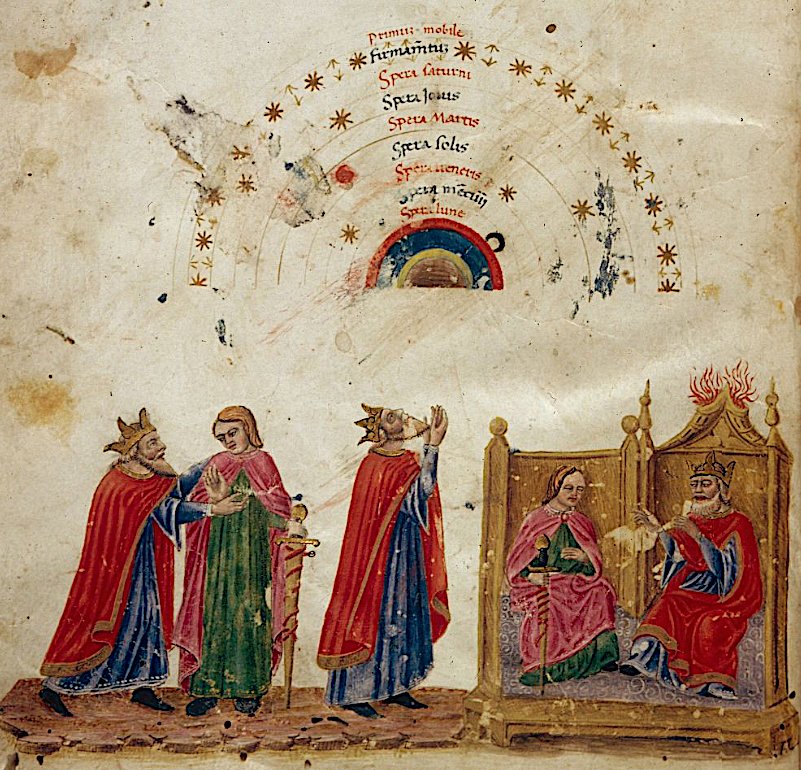 primus mobile
firmam̄tuz
Spera saturni
Spera Jouis
Spera Martis
Spera solis
Spera ueneris
Spera m̄cuii
Spera lune